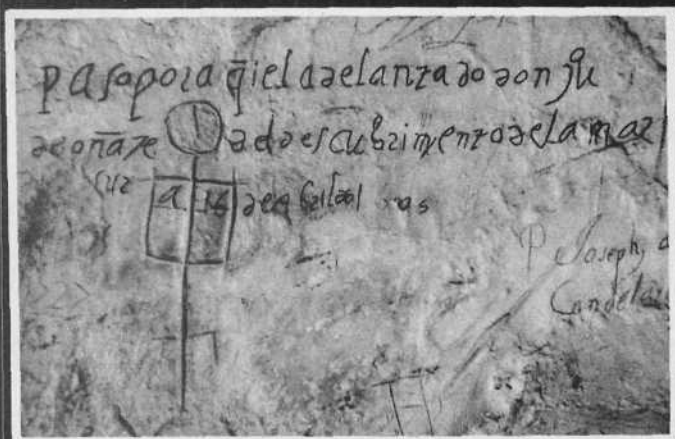 pasopoꝛaq̄ieladelantadodonju
deoñate dedescubrimentodelamar
sur a 16 deabril del os
P Joseph, d
Candelar